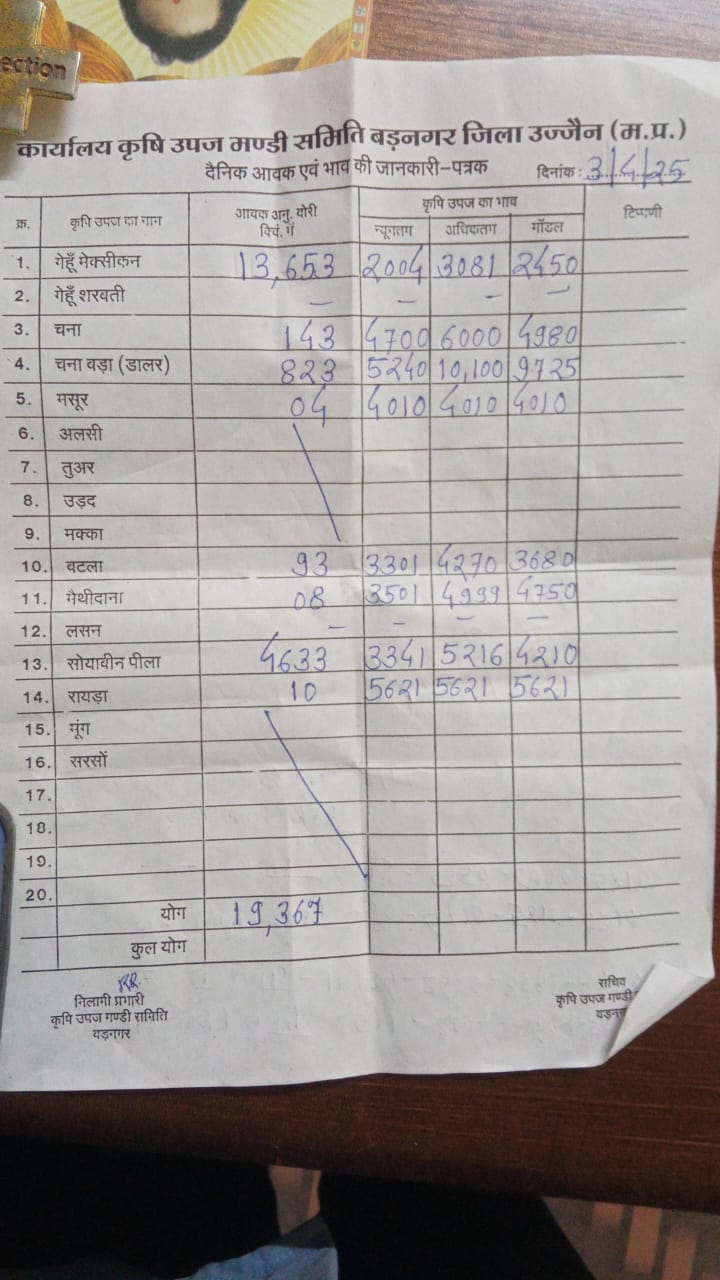 ection
कार्यालय कृषि उपज मण्डी समिति बड़नगर जिला उज्जैन (म.प्र.)
दैनिक आवक एवं भाव की जानकारी-पत्रक दिनांक: 3/4/25
क्र. कृषि उपज का नाम आवक अनु. वोरी क्विं. में कृषि उपज का भाव टिप्पणी
न्यूनतम अधिकतम मॉडल
1. गेहूँ मेक्सीकन 13,653 2004 3081 2450
2. गेहूँ शरवती – – – –
3. चना 143 4700 6000 4980
4. चना वड़ा (डालर) 823 5240 10,100 9725
5. मसूर 04 4010 4010 4010
6. अलसी
7. तुअर
8. उड़द
9. मक्का
10. वटला 93 3301 4270 3680
11. मैथीदाना 08 3501 4999 4750
12. लसन – – – –
13. सोयावीन पीला 4633 3341 5216 4210
14. रायड़ा 10 5621 5621 5621
15. मूंग
16. सरसों
17.
18.
19.
20.
योग 19,367
कुल योग
निलामी प्रभारी
कृषि उपज मण्डी समिति
वड़नगर
सचिव
कृषि उपज मण्डी